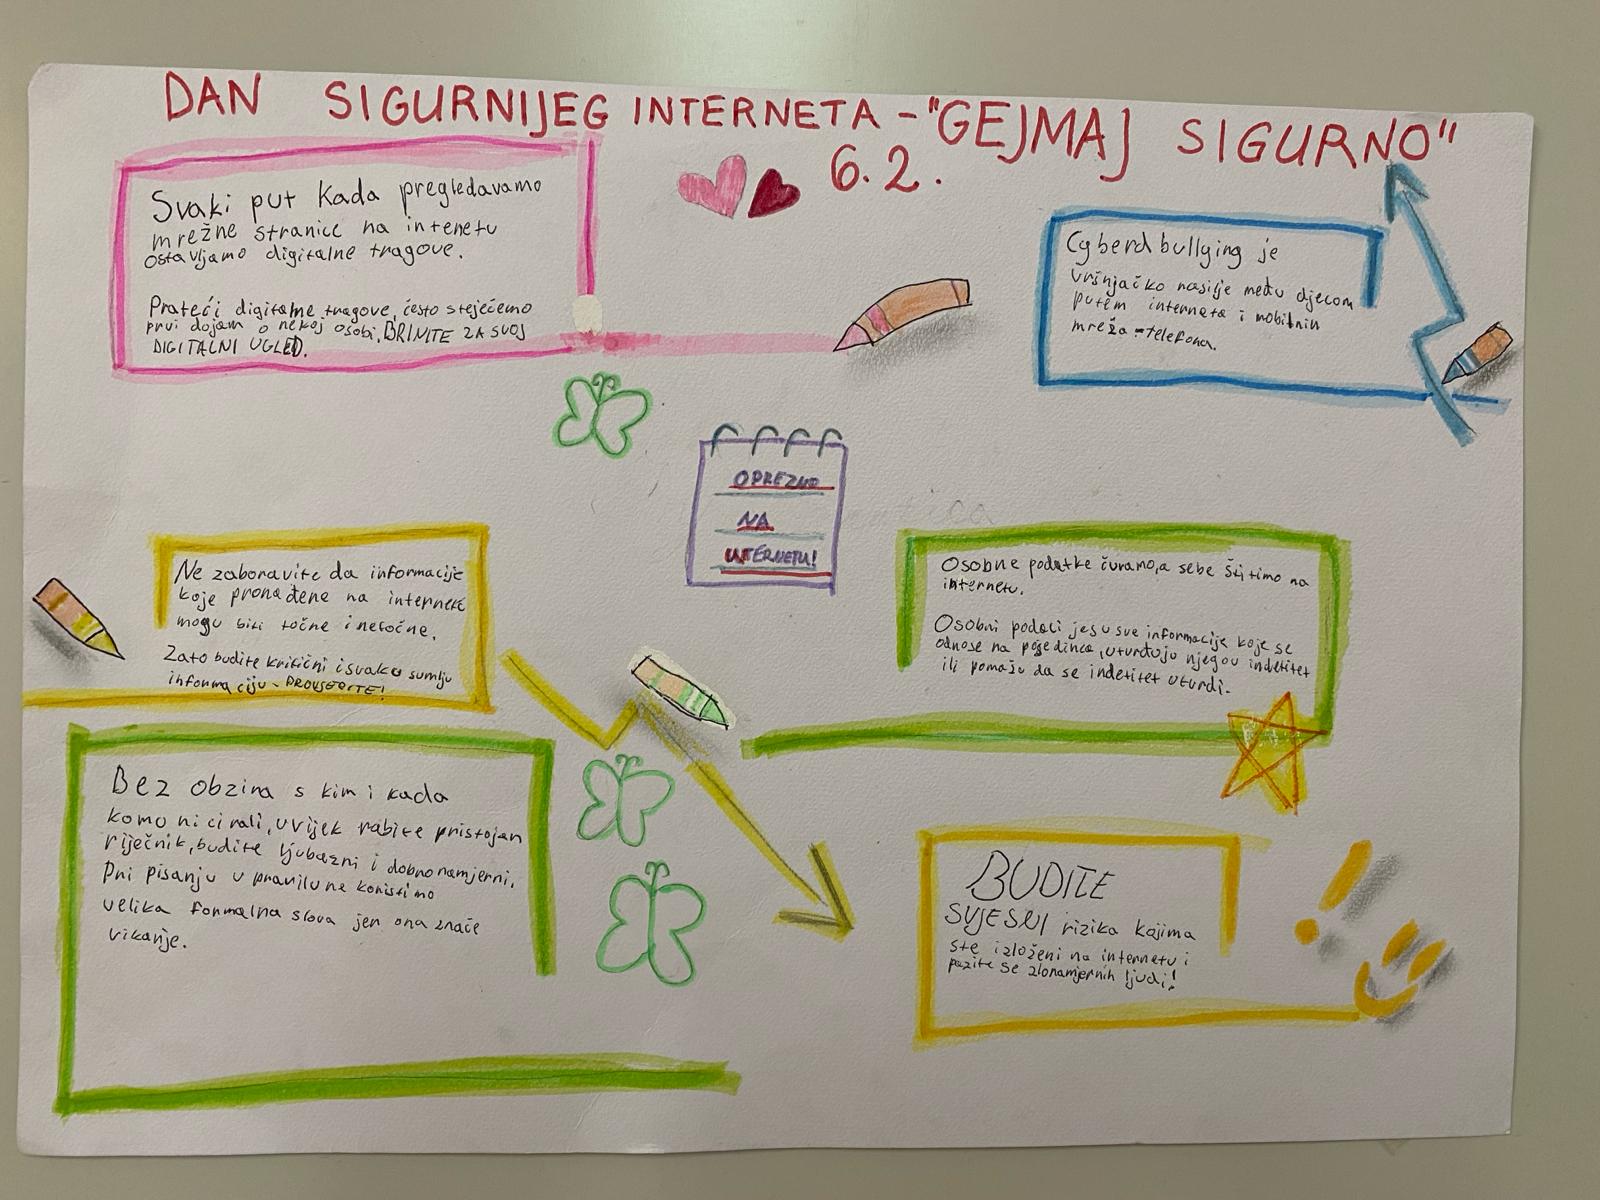 DAN SIGURNIJEG INTERNETA - "GEJMAJ SIGURNO"
6.2.
Svaki put kada pregledavamo
mrežne stranice na intenetu
ostavljamo digitalne tragove.
Prateći digitalne tragove, često stejećemo
prvi dojam o nekoj osobi. BRINITE ZA SVOJ
DIGITALNI UGLED.
Cyberd bullying je
vršnjačko nasilje među djecom
putem interneta i mobilnih
mreža - telefona.
OPREZNO
NA
INTERNETU!
Ne zaboravite da informacije
koje pronađene na internetu
mogu biti točne i netočne.
Zato budite kritični i svaku sumlju
informaciju - PROVJERITE!
Osobne podatke čuvamo, a sebe štitimo na
internetu.
Osobni podaci jesu sve informacije koje se
odnose na pojedinca, utvrđuju njegov indetitet
ili pomažu da se indetitet utvrdi.
Bez obzira s kim i kada
komunicirali, uvijek rabite pristojan
riječnik, budite ljubazni i dobronamjerni.
Pri pisanju u pravilu ne koristimo
velika formalna slova jer ona znače
vikanje.
BUDITE
SVJESNI rizika kojima
ste izloženi na internetu i
pazite se zlonamjernih ljudi!
!